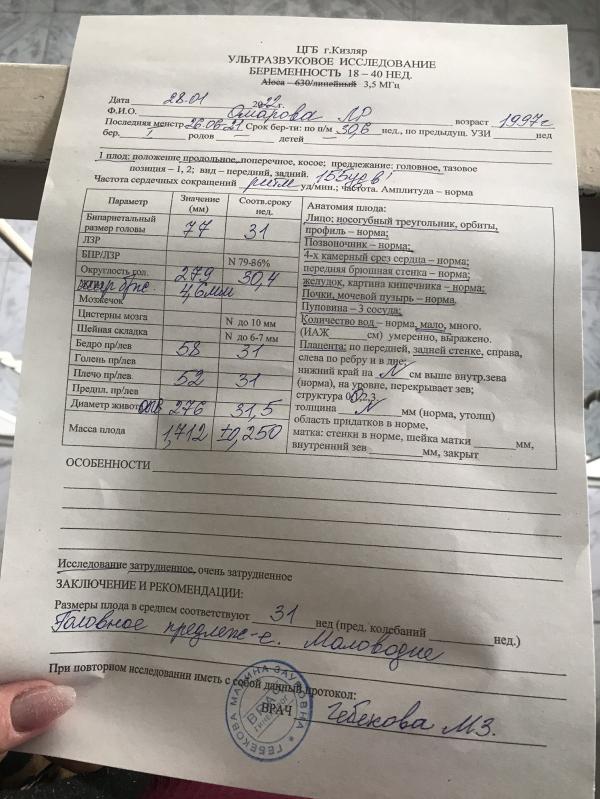 ЦГБ г.Кизляр
УЛЬТРАЗВУКОВОЕ ИССЛЕДОВАНИЕ
БЕРЕМЕННОСТЬ 18 – 40 НЕД.
Aloca – 630/линейный 3,5 МГц
Дата 28.01 2022 г.
Ф.И.О. Омарова ЛР возраст 1997г
Последняя менстр 26.06.21 Срок бер-ти: по п/м 30,6 нед., по предыдущ. УЗИ нед
бер. I родов — детей
1 плод: положение продольное, поперечное, косое; предлежание: головное, тазовое
позиция – 1, 2; вид – передний, задний.
Частота сердечных сокращений ритм 155 уд/мин.; частота. Амплитуда – норма
Параметр Значение (мм) Соотв.сроку нед.
Бипариетальный размер головы 77 31
ЛЗР
БПР/ЛЗР N 79-86%
Округлость гол. 279 30,4
46мм
Мозжечок
Цистерны мозга N до 10 мм
Шейная складка N до 6-7 мм
Бедро пр/лев 58 31
Голень пр/лев
Плечо пр/лев 52 31
Предпл. пр/лев
Диаметр живота 276 31,5
Масса плода 1,712 ±0,250
Анатомия плода:
Лицо; носогубный треугольник, орбиты,
профиль – норма;
Позвоночник – норма;
4-х камерный срез сердца – норма;
передняя брюшная стенка – норма;
желудок, картина кишечника – норма;
Почки, мочевой пузырь – норма.
Пуповина – 3 сосуда;
Количество вод – норма, мало, много.
(ИАЖ см) умеренно, выражено.
Плацента: по передней, задней стенке, справа,
слева по ребру и в дне;
нижний край на N см выше внутр.зева
(норма), на уровне, перекрывает зев;
структура 0,1,2,3
толщина N мм (норма, утолщ)
область придатков в норме,
матка: стенки в норме, шейка матки мм,
внутренний зев мм, закрыт
ОСОБЕННОСТИ
Исследование затрудненное, очень затрудненное
ЗАКЛЮЧЕНИЕ И РЕКОМЕНДАЦИИ:
Размеры плода в среднем соответствуют 31 нед (пред. колебаний нед.)
Головное предлеж-е. Маловодие
При повторном исследовании иметь с собой данный протокол:
ВРАЧ Гебекова М.З.
ГЕБЕКОВА МАДИНА ЗАУРОВНА
ВРАЧ